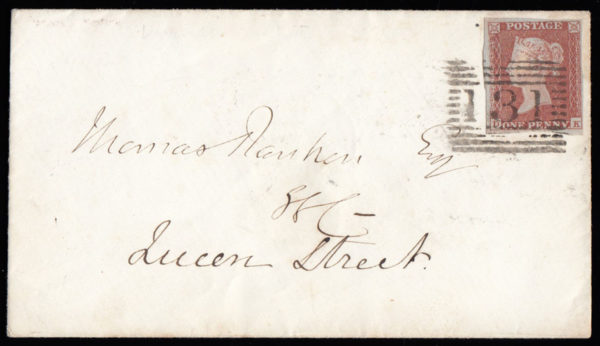 POSTAGE
131
ONE PENNY
Thomas Ranken Esq
88 G—
Queen Street.